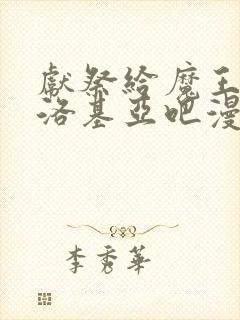 獻祭給魔王
洛基亞吧漫
李秀華